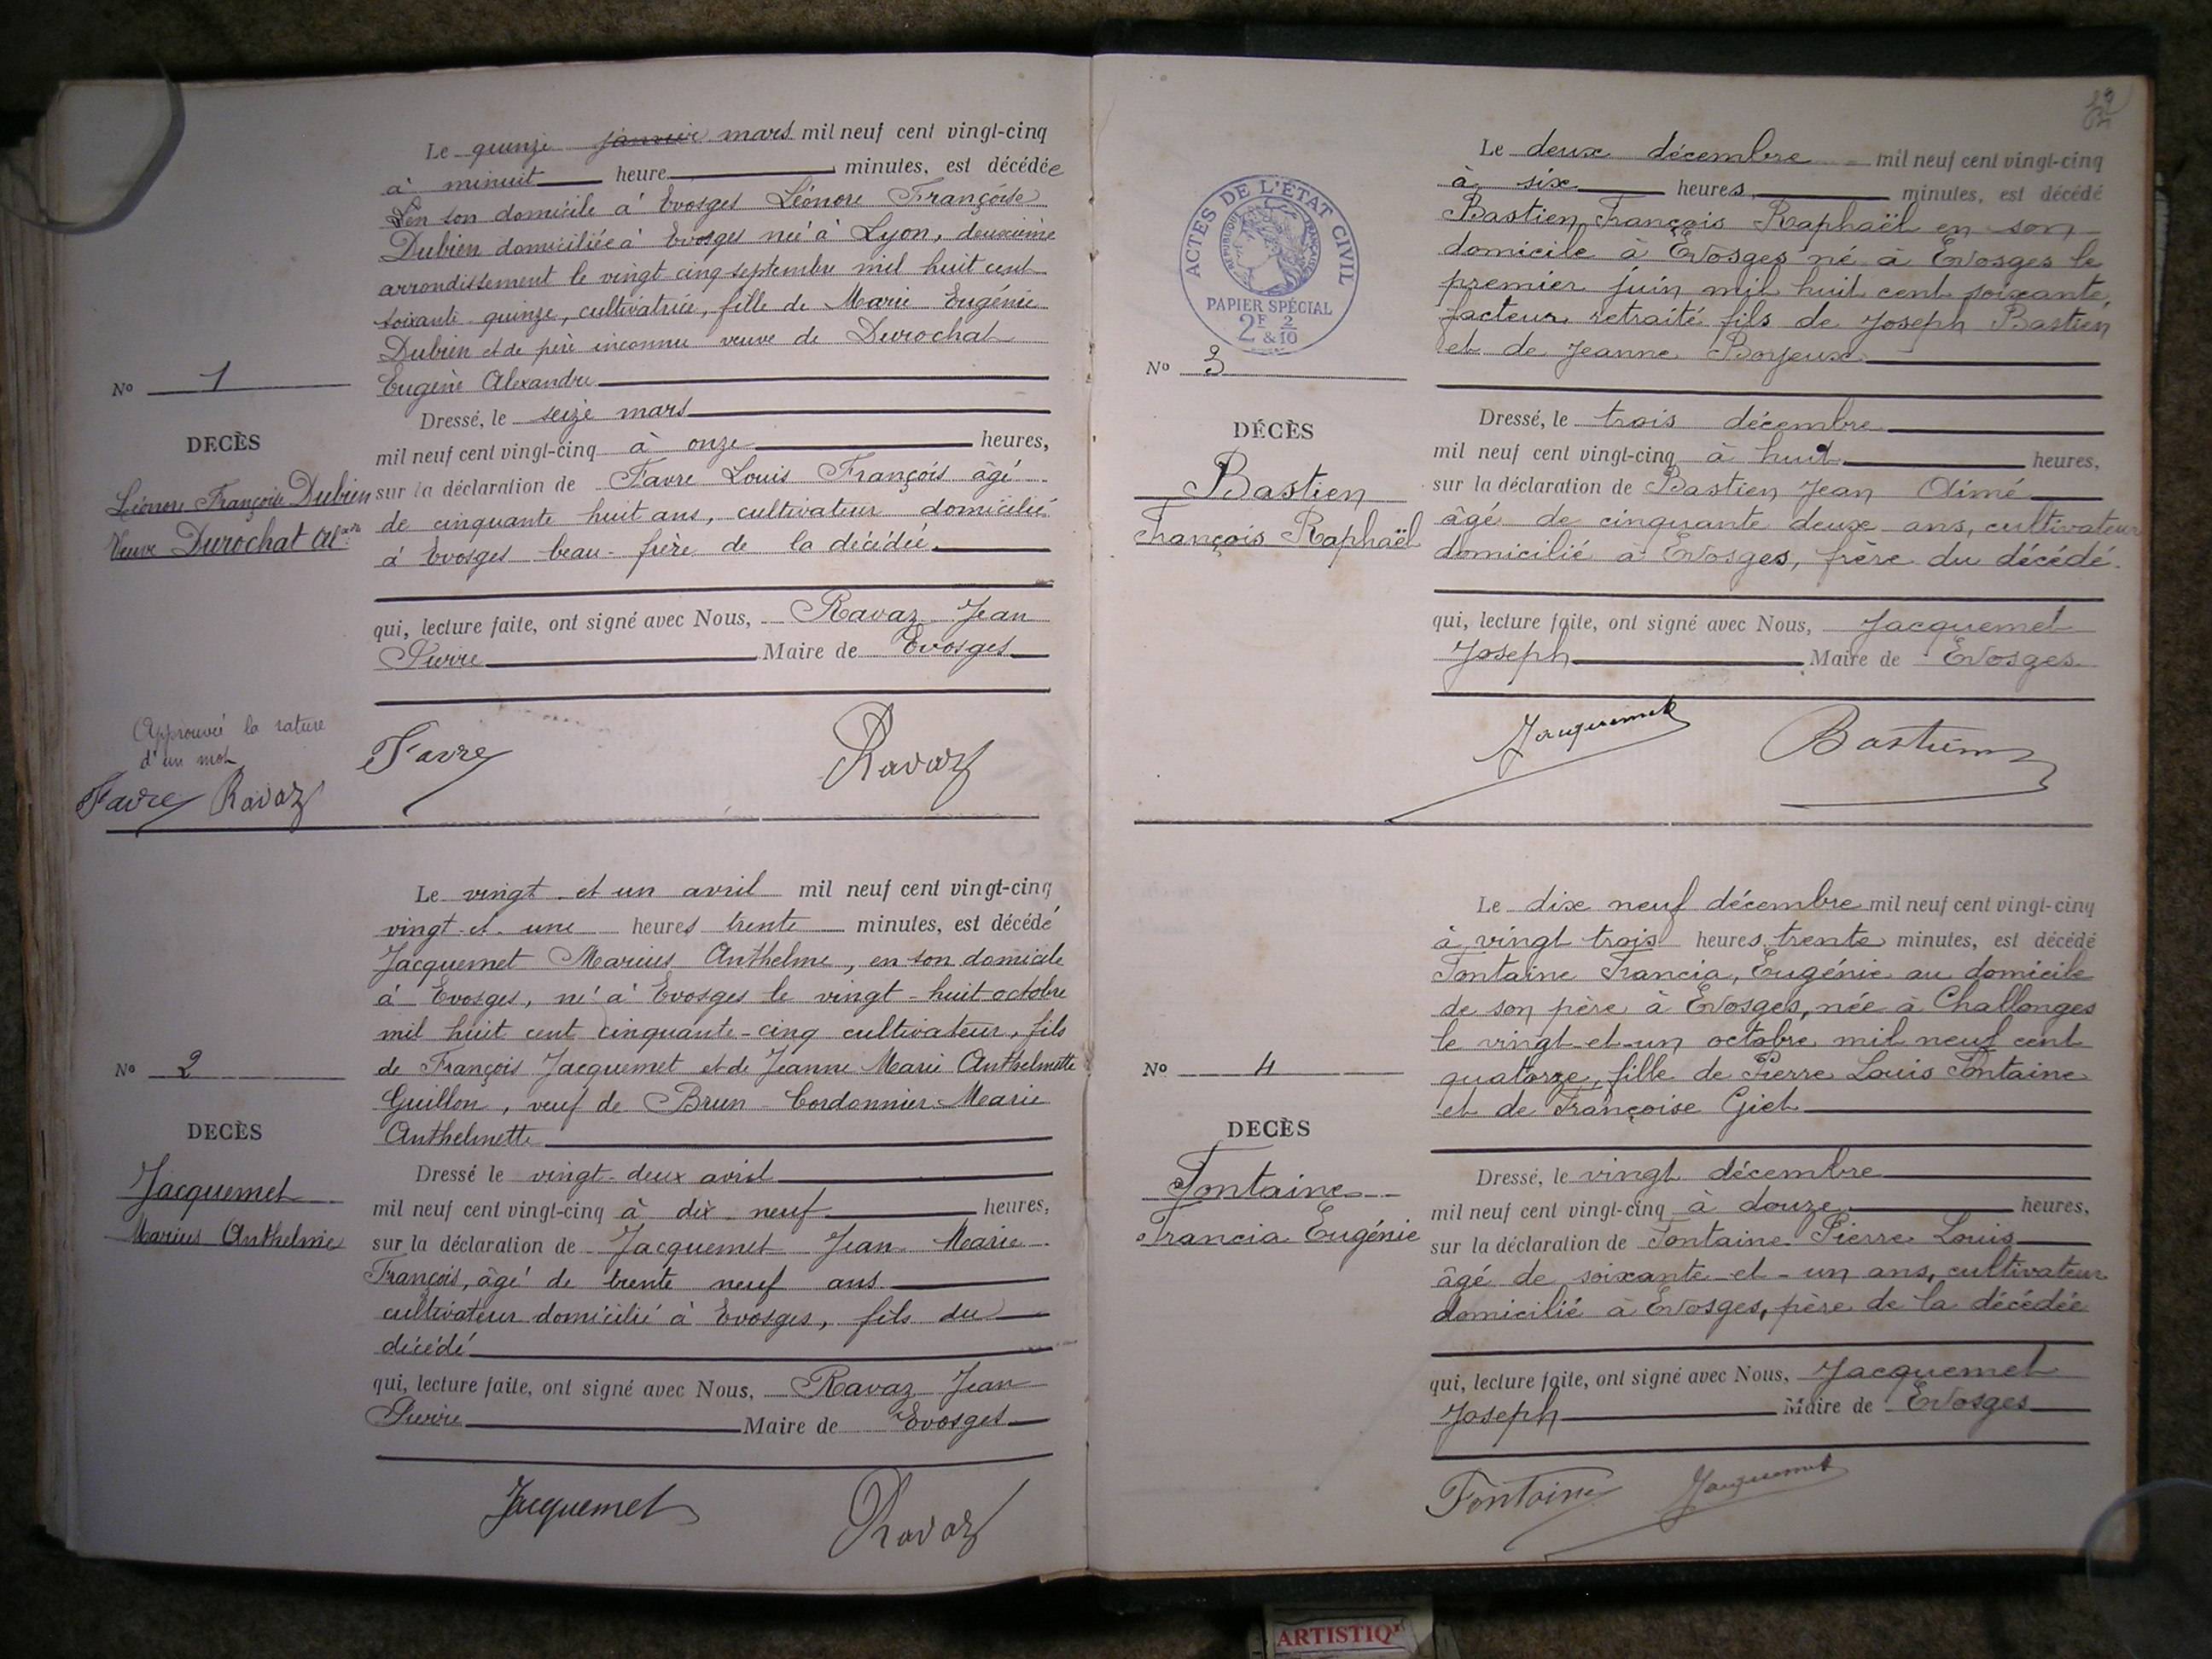 Le quinze janvier mars mil neuf cent vingt-cinq
à minuit heure minutes, est décédée
en son domicile à Evosges Léonore Françoise
Dubien domiciliée à Evosges née à Lyon, deuxième
arrondissement le vingt cinq septembre mil huit cent
soixante quinze, cultivatrice, fille de Marie Eugénie
Dubien et de père inconnu veuve de Durochat
Eugène Alexandre
No 1
DECÈS
Léonore Françoise Dubien
Veuve Durochat
Dressé, le seize mars
mil neuf cent vingt-cinq à onze heures,
sur la déclaration de Favre Louis François âgé
de cinquante huit ans, cultivateur domicilié
à Evosges beau-frère de la décédée.
qui, lecture faite, ont signé avec Nous, Ravaz Jean
Pierre Maire de Evosges
Approuvé la rature
d'un mot
Favre Ravaz
Favre Ravaz
Le vingt et un avril mil neuf cent vingt-cinq
vingt et une heures trente minutes, est décédé
Jacquemet Marius Anthelme, en son domicile
à Evosges, né à Evosges le vingt-huit octobre
mil huit cent cinquante-cinq cultivateur, fils
de François Jacquemet et de Jeanne Marie Anthelmette
Guillon, veuf de Brun-Cordonnier-Marie
Anthelmette
No 2
DECÈS
Jacquemet
Marius Anthelme
Dressé le vingt-deux avril
mil neuf cent vingt-cinq à dix-neuf heures,
sur la déclaration de Jacquemet Jean Marie
François, âgé de trente neuf ans
cultivateur domicilié à Evosges, fils du
décédé
qui, lecture faite, ont signé avec Nous, Ravaz Jean
Pierre Maire de Evosges
Jacquemet Ravaz
ACTES DE L'ÉTAT CIVIL
RÉPUBLIQUE FRANÇAISE
PAPIER SPÉCIAL
2F & 2/10
Le deux décembre mil neuf cent vingt-cinq
à six heures minutes, est décédé
Bastien François Raphaël en son
domicile à Evosges né à Evosges le
premier juin mil huit cent soixante,
facteur retraité fils de Joseph Bastien
et de Jeanne Boyeux
No 3
DÉCÈS
Bastien
François Raphaël
Dressé, le trois décembre
mil neuf cent vingt-cinq à huit heures,
sur la déclaration de Bastien Jean Aimé
âgé de cinquante deux ans, cultivateur
domicilié à Evosges, frère du décédé.
qui, lecture faite, ont signé avec Nous, Jacquemet
Joseph Maire de Evosges
Jacquemet Bastien
Le dix neuf décembre mil neuf cent vingt-cinq
à vingt trois heures trente minutes, est décédé
Fontaine Francia, Eugénie au domicile
de son père à Evosges, née à Challonges
le vingt-et-un octobre mil neuf cent
quatorze, fille de Pierre Louis Fontaine
et de Françoise Giet
No 4
DECÈS
Fontaine
Francia Eugénie
Dressé, le vingt décembre
mil neuf cent vingt-cinq à douze heures,
sur la déclaration de Fontaine Pierre Louis
âgé de soixante-et-un ans, cultivateur
domicilié à Evosges, père de la décédée
qui, lecture faite, ont signé avec Nous, Jacquemet
Joseph Maire de Evosges
Fontaine Jacquemet
ARTISTIQ